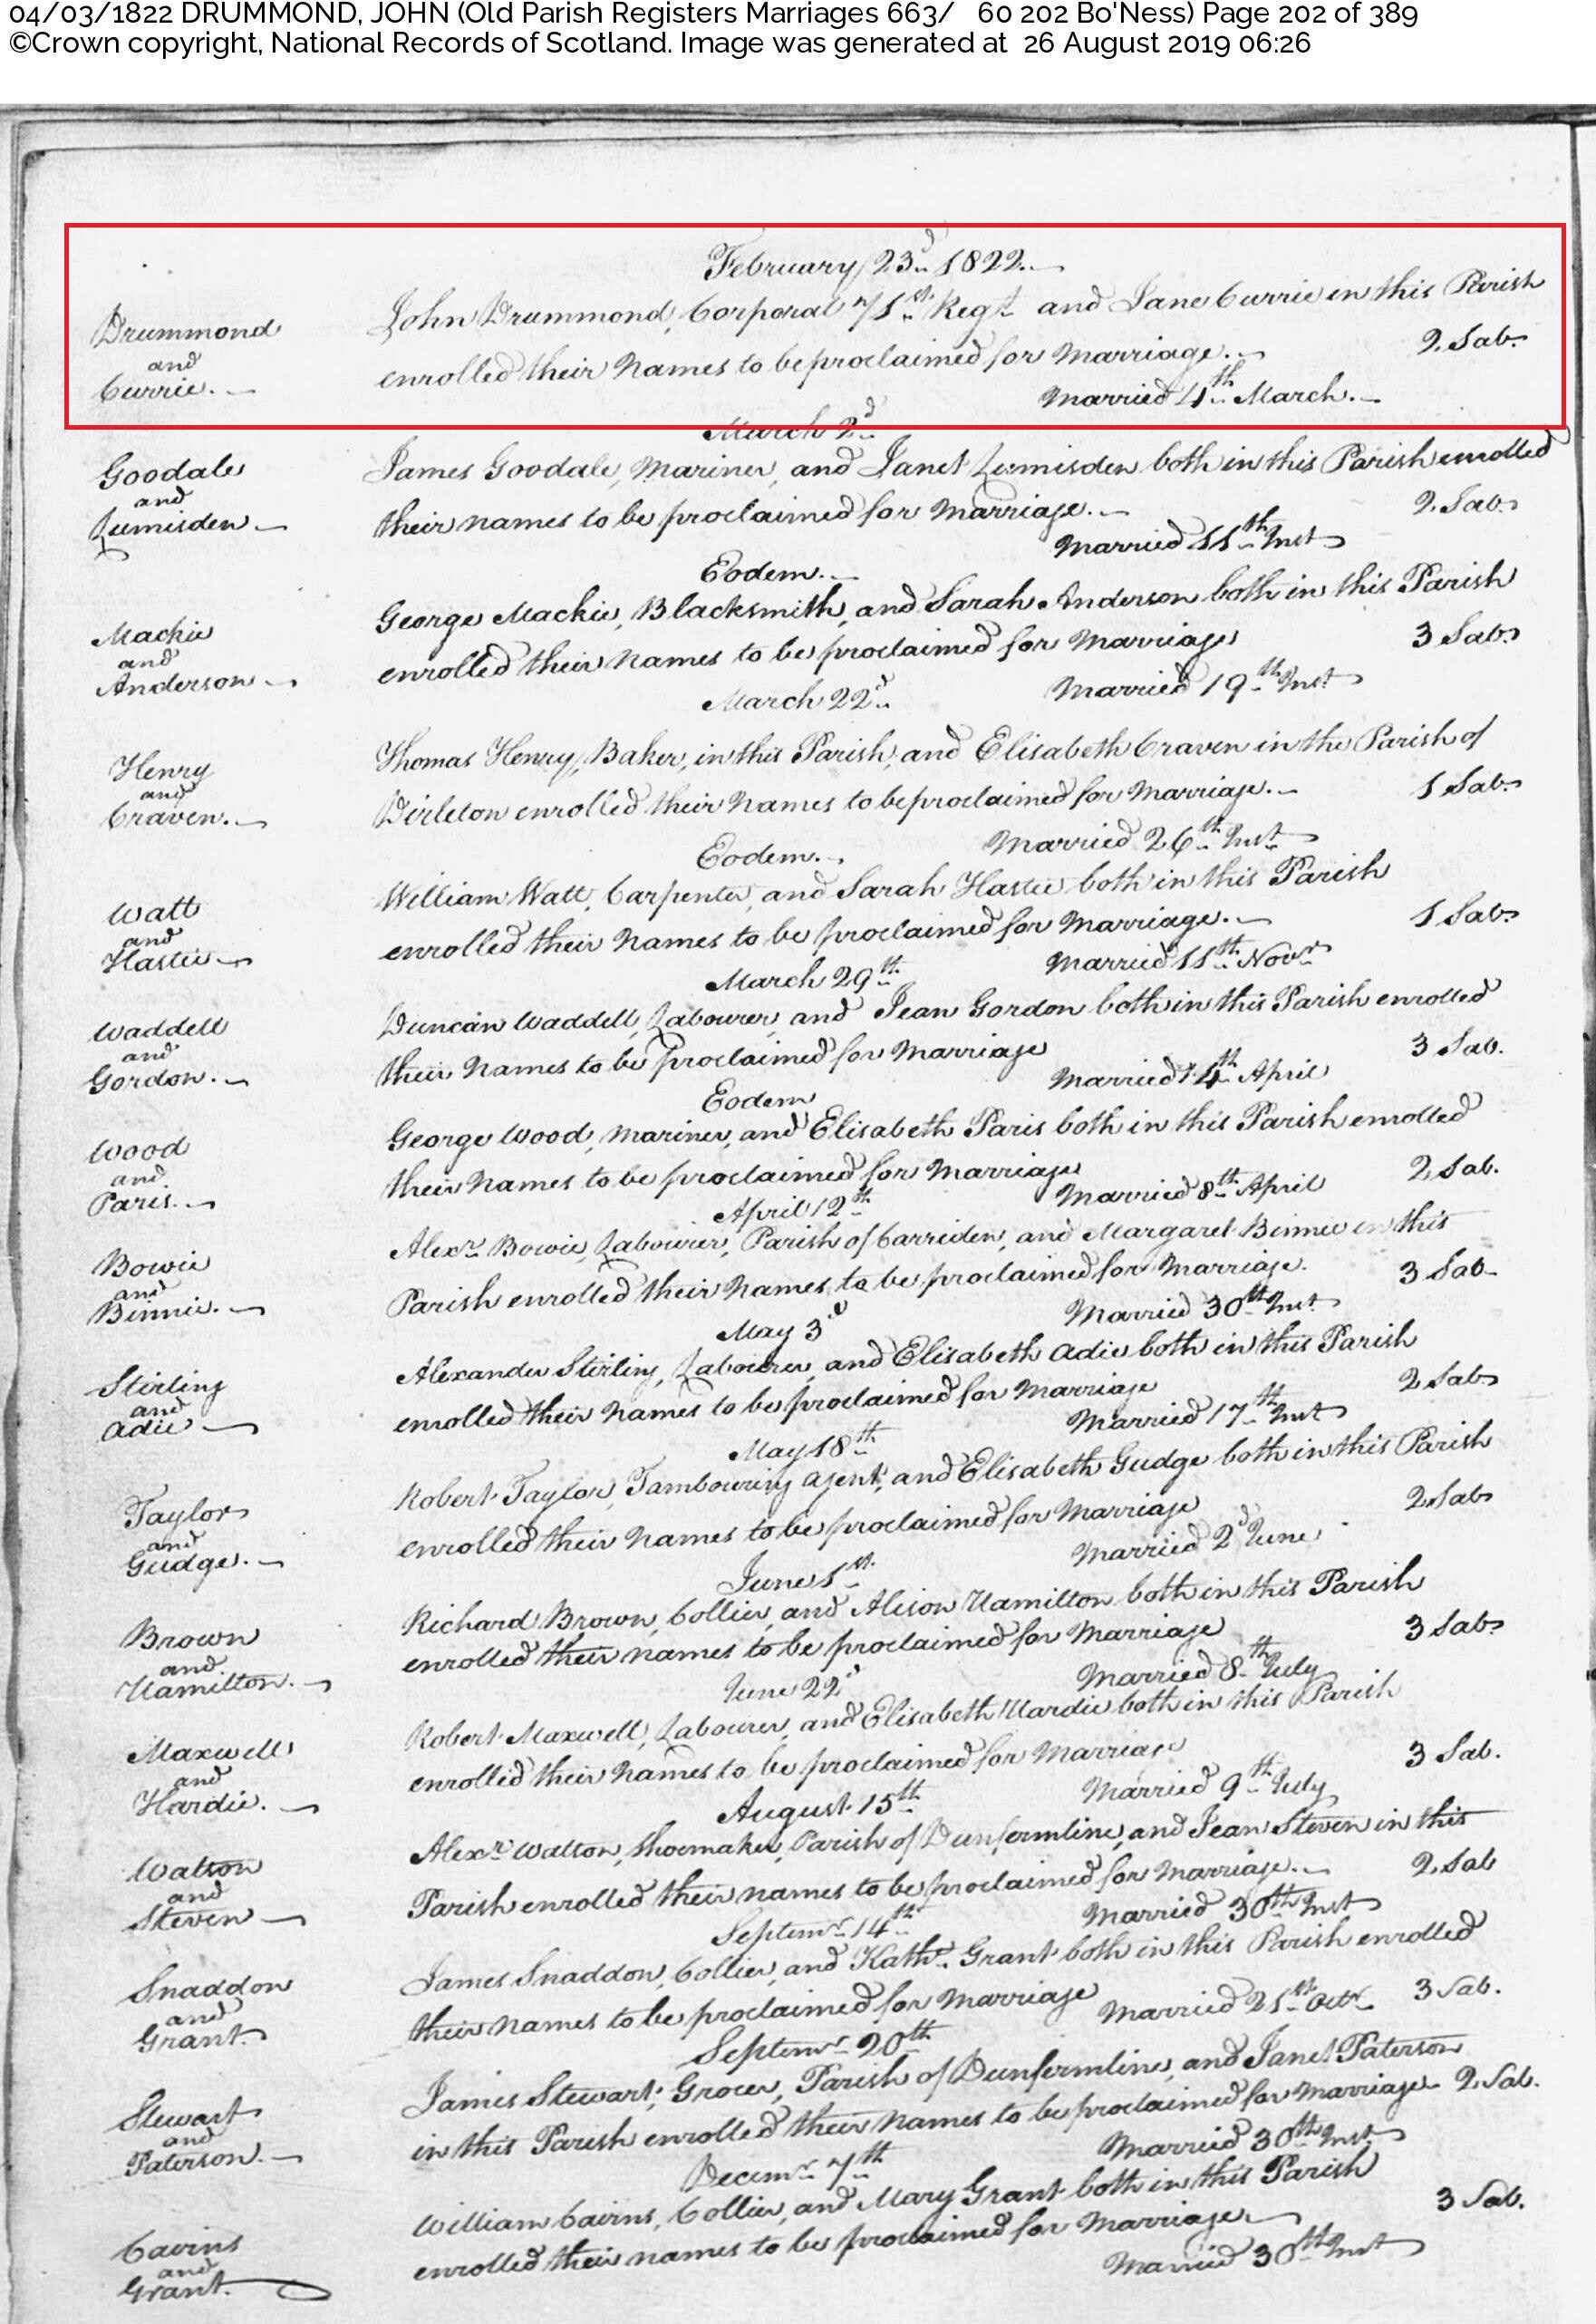 04/03/1822 DRUMMOND, JOHN (Old Parish Registers Marriages 663/ 60 202 Bo'Ness) Page 202 of 389
©Crown copyright, National Records of Scotland. Image was generated at 26 August 2019 06:26
February 23d 1822.
Drummond and Currie.
John Drummond, Corporal 71st Regt and Jane Currie in this Parish
enrolled their Names to be proclaimed for Marriage. 2 Sab.
Married 4th March.
March 2d
Goodale and Lumisden
James Goodale, Mariner, and Janet Lumisden both in this Parish enrolled
their names to be proclaimed for Marriage. 2 Sab.
Married 11th Inst
Eodem.
Mackie and Anderson
George Mackie, Blacksmith, and Sarah Anderson both in this Parish
enrolled their Names to be proclaimed for Marriage 3 Sab.
Married 19th Inst
March 22d
Henry and Craven.
Thomas Henry, Baker, in this Parish, and Elisabeth Craven in the Parish of
Dirleton enrolled their Names to be proclaimed for Marriage. 1 Sab.
Married 26th Inst
Eodem.
Watt and Hastie
William Watt, Carpenter, and Sarah Hastie both in this Parish
enrolled their Names to be proclaimed for Marriage. 1 Sab.
Married 11th Novr
March 29th
Waddell and Gordon.
Duncan Waddell, Labourer, and Jean Gordon both in this Parish enrolled
their Names to be proclaimed for Marriage 3 Sab.
Married 14th April
Eodem
Wood and Paris.
George Wood, Mariner, and Elisabeth Paris both in this Parish enrolled
their Names to be proclaimed for Marriage 2 Sab.
Married 8th April
April 12th
Bowie and Binnie.
Alexr Bowie, Labourer, Parish of Carriden, and Margaret Binnie in this
Parish enrolled their Names to be proclaimed for Marriage. 3 Sab
Married 30th Inst
May 3d
Stirling and Adie
Alexander Stirling, Labourer, and Elisabeth Adie both in this Parish
enrolled their Names to be proclaimed for Marriage 2 Sab
Married 17th Inst
May 18th
Taylor and Gudge.
Robert Taylor, Tambouring Agent, and Elisabeth Gudge both in this Parish
enrolled their Names to be proclaimed for Marriage 2 Sab
Married 2d June
June 1st
Brown and Hamilton.
Richard Brown, Collier, and Alison Hamilton both in this Parish
enrolled their names to be proclaimed for Marriage 3 Sab.
Married 8th July
June 22d
Maxwell and Hardie.
Robert Maxwell, Labourer, and Elisabeth Hardie both in this Parish
enrolled their Names to be proclaimed for Marriage 3 Sab.
Married 9th July
August 15th
Watson and Steven
Alexr Watson, Shoemaker, Parish of Dunfermline, and Jean Steven in this
Parish enrolled their names to be proclaimed for Marriage. 2 Sab
Married 30th Inst
Septemr 14th
Snaddon and Grant.
James Snaddon, Collier, and Kathe Grant both in this Parish enrolled
their names to be proclaimed for Marriage 3 Sab.
Married 21st Octr
Septemr 20th
Stewart and Paterson.
James Stewart, Grocer, Parish of Dunfermline, and Janet Paterson
in this Parish enrolled their Names to be proclaimed for Marriage 2 Sab.
Married 30th Inst
Decemr 7th
Cairns and Grant.
William Cairns, Collier, and Mary Grant both in this Parish
enrolled their names to be proclaimed for Marriage 3 Sab.
Married 30th Inst